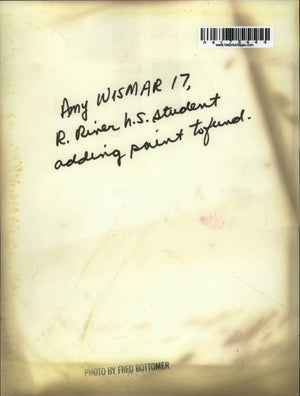 www.historicimages.com
Amy WISMAR 17,
R. River h.S. student
adding paint to
PHOTO BY FRED BOTTOMER